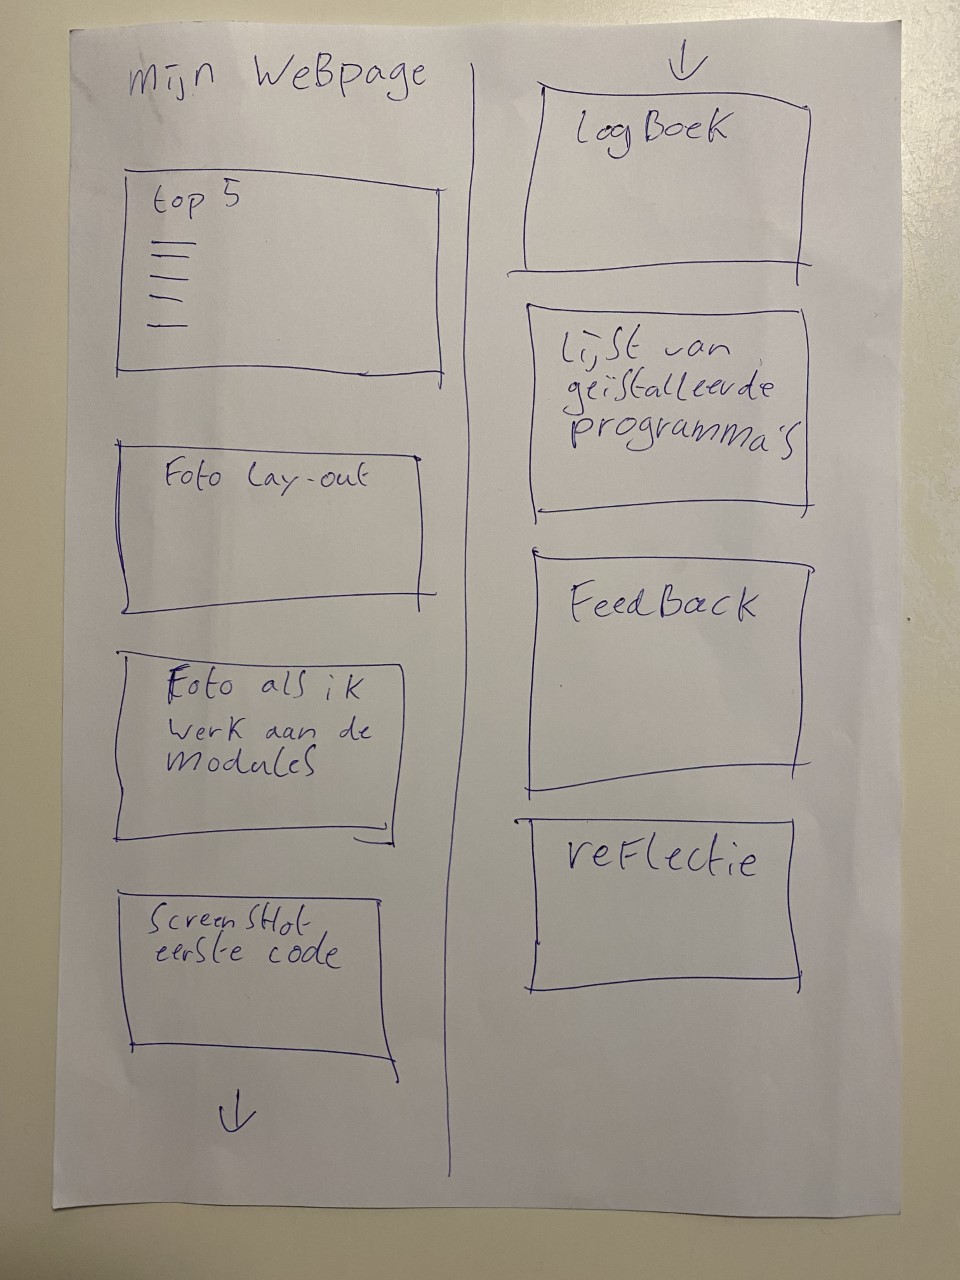 mijn WeBpage
top 5
Foto Lay-out
Foto als ik
werk aan de
modules
ScreenSHot
eerste code
LogBoek
Lijst van
geïstalleerde
programma's
FeedBack
reFlectie